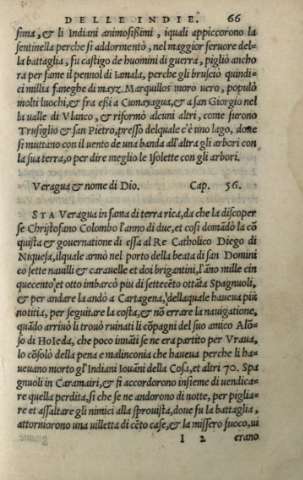 DELLE INDIE. 66
sima, & li Indiani animosißimi, iquali appiccorono la
sentinella perche si addormentò, nel maggior feruore del-
la battaglia, fu castigo de huomini di guerra, pigliò ancho
ra per fame il pennol di Lamala, perche gli brusciò quindi-
ci millia faneghe di mayz. Marquillos moro uero, populò
molti luochi, & fra esßi a Cumayagua, & a san Giorgio nel
la ualle di Vlanco, & riformò alcuni altri, come furono
Trusiglio & san Pietro, presso delquale c'è uno lago, doue
si mutano con il uento de una banda all'altra gli arbori con
la sua terra, o per dire meglio le Isolette con gli arbori.
Veragua & nome di Dio. Cap. 56.
STA Veragua in fama di terra rica, da che la discoper
se Christofano Colombo l'anno di due, et cosi domādò la cō
quista & gouernatione di essa al Re Catholico Diego di
Niquesa, ilquale armò nel porto della beata di san Domini
co sette nauilli & carauelle et doi brigantini, l'āno mille cin
quecento, et otto imbarcò piu di settecēto ottāta Spagnuoli,
& per andare la andò a Cartagena, dellaquale haueua piu
notitia, per seguitare la costa, & nō errare la nauigatione,
quādo arriuò li trouò ruinati li cōpagni del suo amico Alō-
so di Hoieda, che poco innāti se ne era partito per Vraua,
lo cōsolò della pena e malinconia che haueua perche li ha-
ueuano morto gl' Indiani Iouāni della Cosa, et altri 70. Spa
gnuoli in Caramairi, & si accordorono insieme di uendica-
re quella perdita, si che se ne andorono di notte, per piglia-
re et assaltare gli nimici alla sprouista, doue fu la battaglia,
attorniorono una uilletta di cēto case, & la missero fuoco, ui
I 2 erano